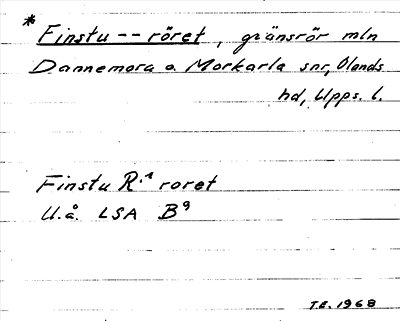 * Finstu -- röret, gränsrör mln
Dannemora o. Morkarla snr, Olands
hd, Upps. l.
Finstu R:¹ roret
U.å. LSA B⁹
T.E. 1968